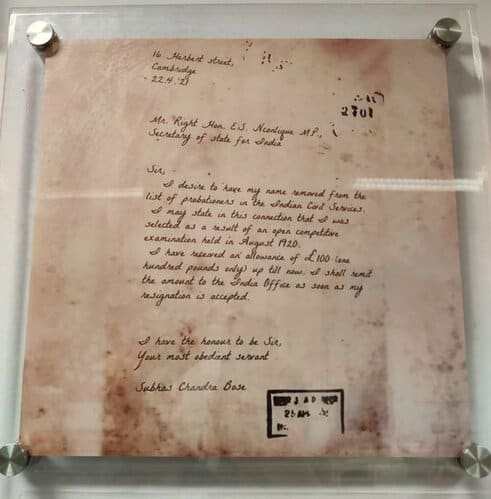 16 Herbert street,
Cambridge
22.4.'21
2701
Mr. Right Hon. E.S. Ncontique M.P.,
Secretary of state for India
Sir,
I desire to have my name removed from the
list of probationers in the Indian Civil Services.
I may state in this connection that I was
selected as a result of an open competitive
examination held in August 1920.
I have received an allowance of £100 (one
hundred pounds only) up till now. I shall remit
the amount to the India Office as soon as my
resignation is accepted.
I have the honour to be Sir,
Your most obedient servant
Subhas Chandra Bose